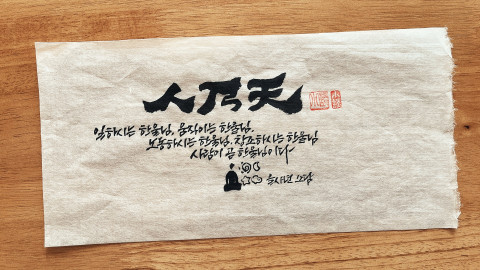 人乃天
일하시는 한울님, 움직이는 한울님,
노동하시는 한울님, 창조하시는 한울님
사람이 곧 한울님이다